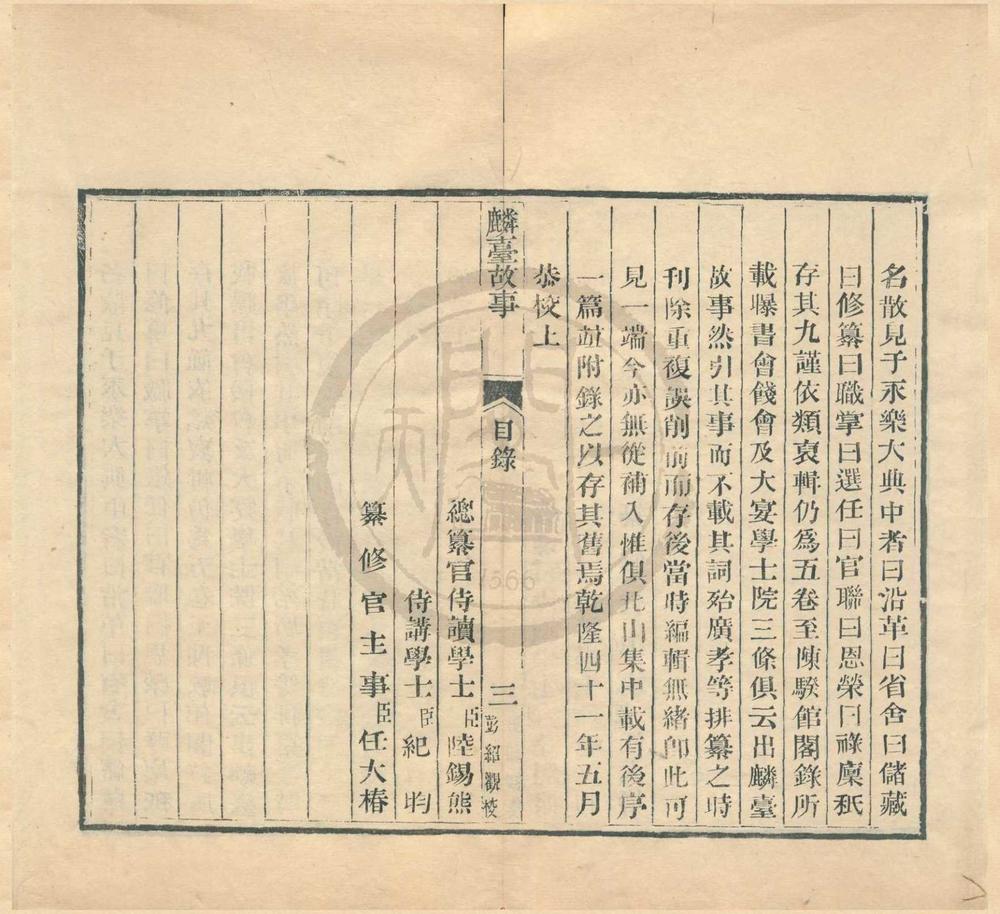 名散見于永樂大典中者曰沿革曰省舍曰儲藏
曰修纂曰職掌曰選任曰官聯曰恩榮曰祿廩秖
存其九謹依類裒輯仍爲五卷至陳騤館閣錄所
載曝書會餞會及大宴學士院三條俱云出麟臺
故事然引其事而不載其詞殆廣孝等排纂之時
刊除重複誤削前而存後當時編輯無緒卽此可
見一端今亦無從補入惟俱北山集中載有後序
一篇並附錄之以存其舊焉乾隆四十一年五月
恭校上
麟臺故事 目錄 三 彭紹觀校
總纂官侍讀學士臣陸錫熊
侍講學士臣紀昀
纂修官主事臣任大椿